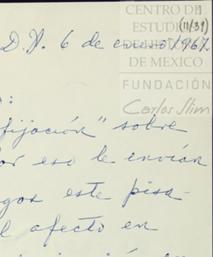 CENTRO DE
ESTUDI
(11/31)
D.N. 6 de enero/967.
DE MEXICO
FUNDACIÓN
Carlos Slim
:
fijación" sobre
or eso le envían
gos este pisa-
l afecto en